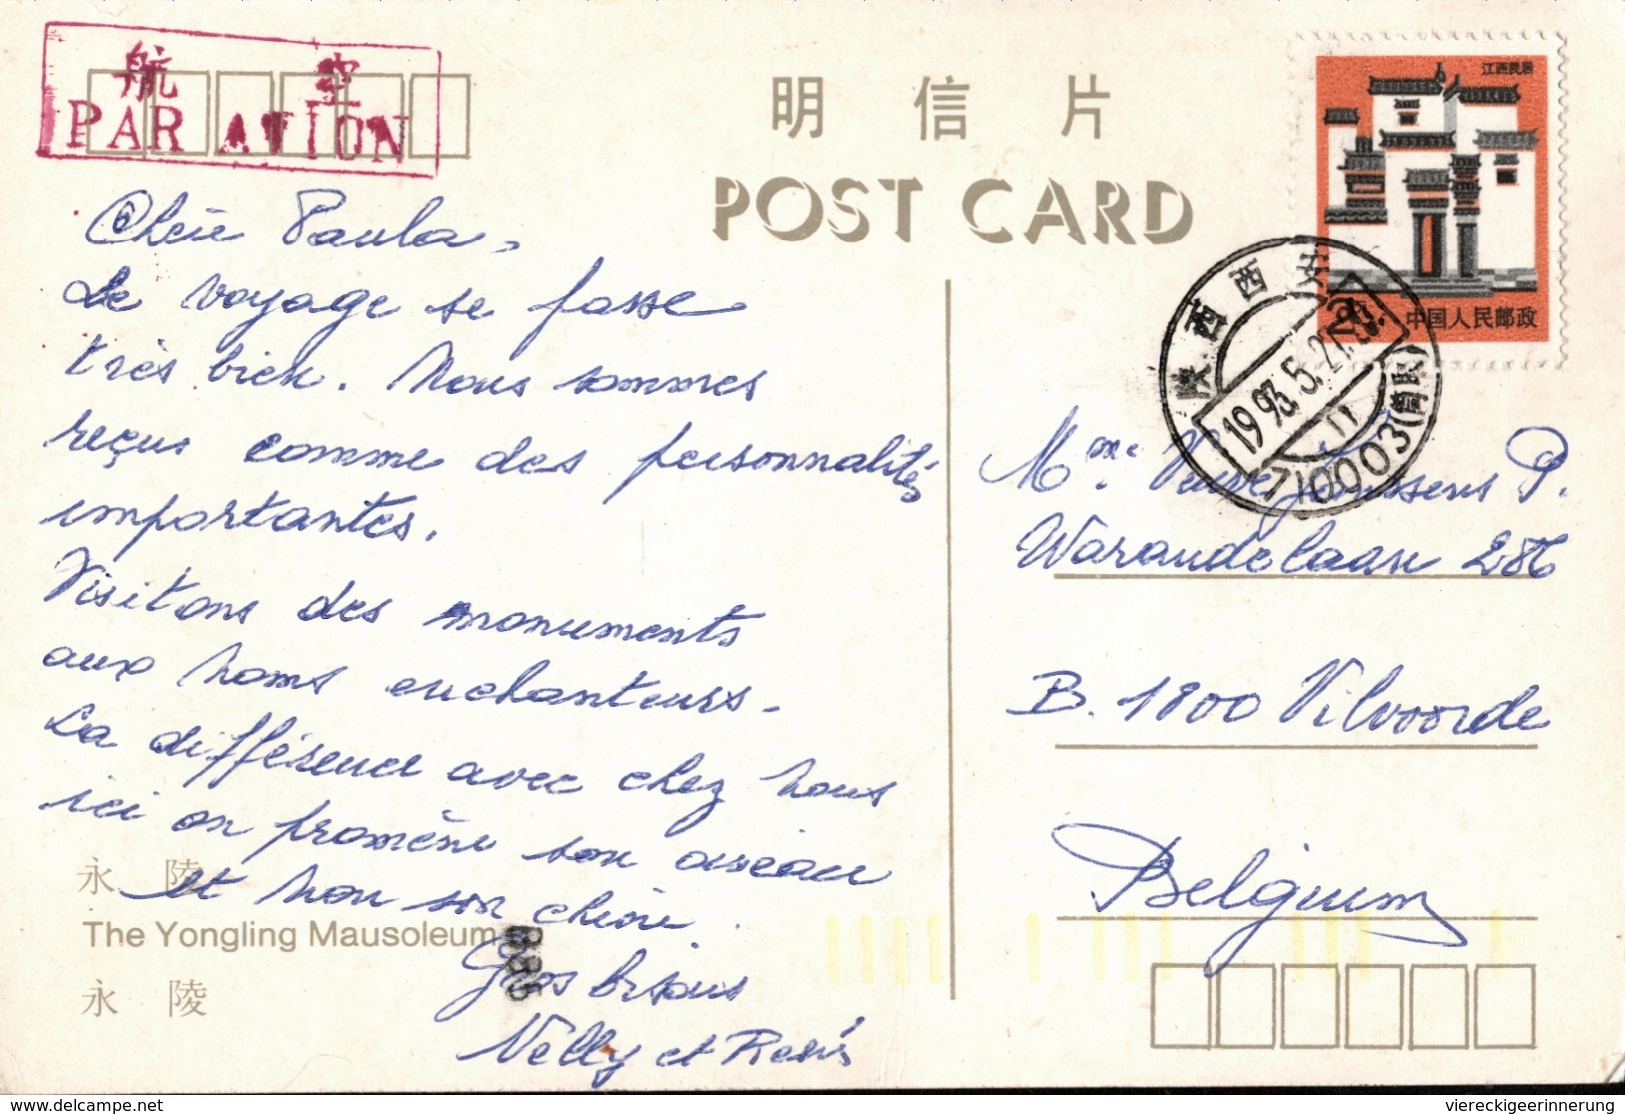 航 空
PAR AVION
明 信 片
POST CARD
江西民居
中国人民邮政
陕.西西安
1993.5.2
710003
Chère Paula,
Le voyage se passe
très bien. Nous sommes
reçus comme des personnalités
importantes.
Visitons des monuments
aux noms enchanteurs.
La différence avec chez nous
ici on promène son oiseau
et non son chien.
Gros bisous
Nelly et René
Mme. Veuve Janssens P.
Warandelaan 286
B. 1800 Vilvoorde
Belgium
永 陵
The Yongling Mausoleum
永 陵
http://www.delcampe.net
viereckigeerinnerung